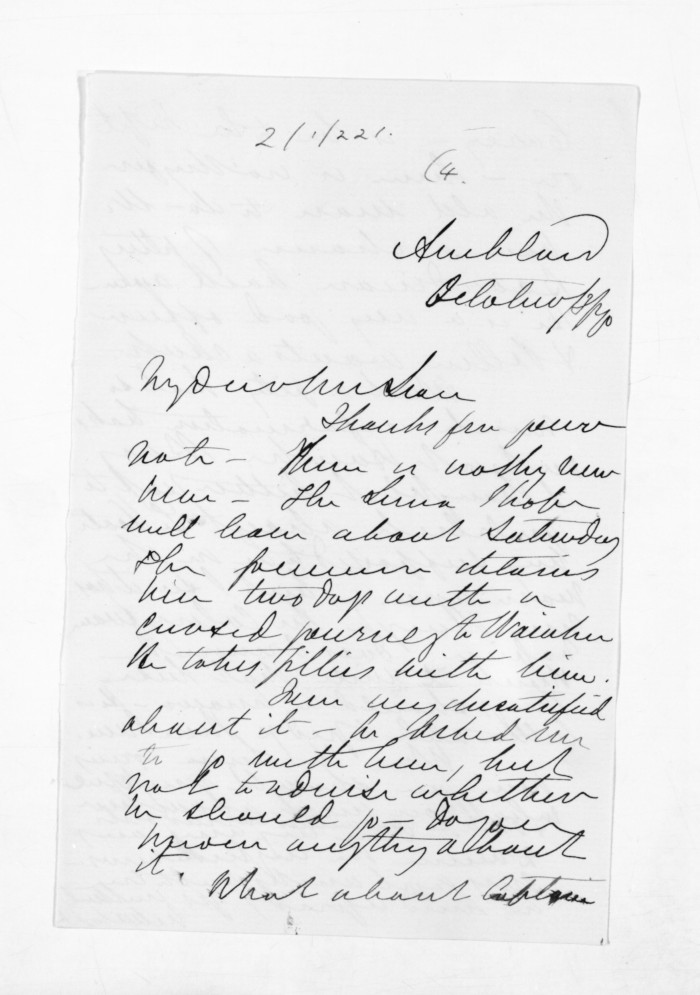 2/1/221.
(4.
Auckland
October 13/70
My Dear McLean
Thanks for your
note - There is nothing new
here - The Luna I hope
will leave about Saturday
The Governor detains
her two days with a
cursed journey to
He takes Gillies with him.
I am very dissatisfied
about it - he asked me
to go with him, but
not to advise whether
he should go - Do you
know anything about
it.
What about Captain